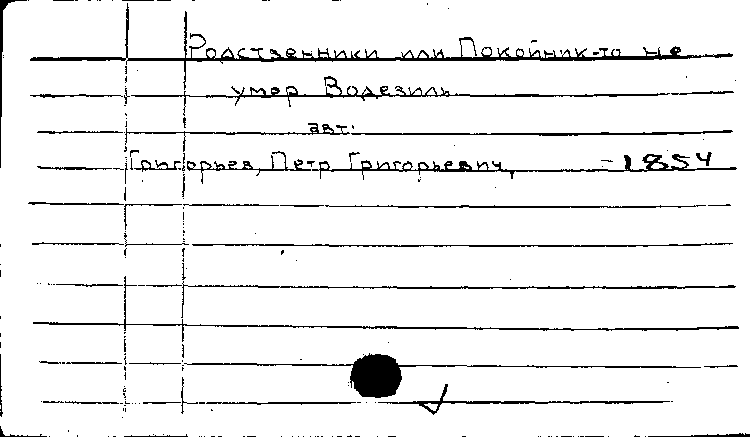 Родственники или Покойник-то не
умер. Водевиль.
авт:
Григорьев, Петр Григорьевич, -1854